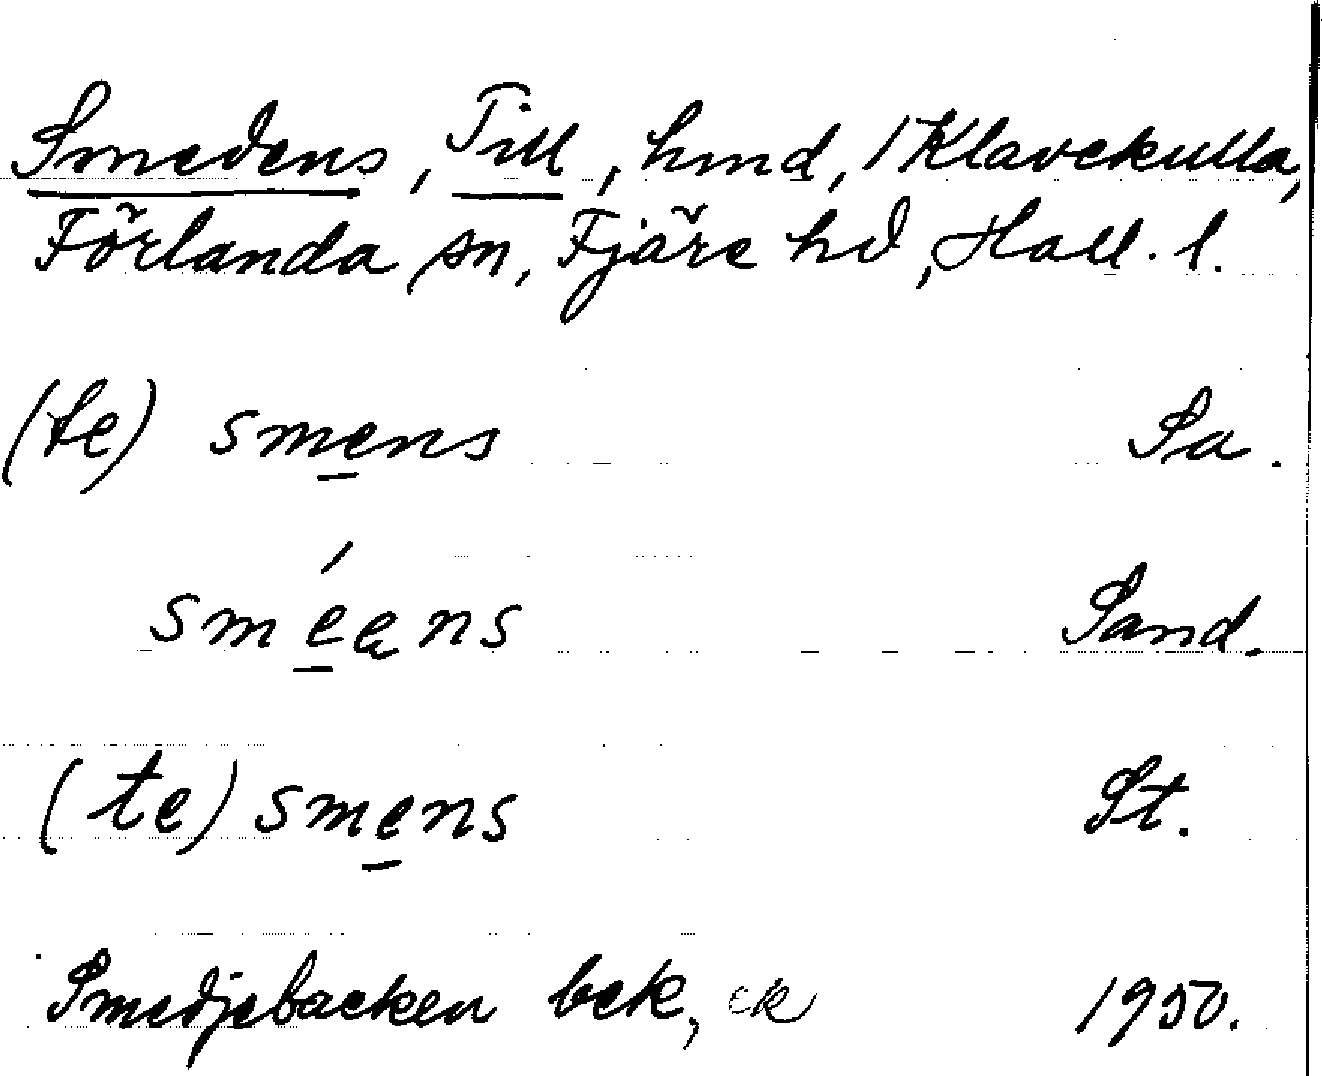 Smedens, Till, hmd, 1 Klavekulla,
Förlanda sn, Fjäre hd, Hall. l.
(te) smens Sa.
sméens Sand.
(te) smens St.
Smedjebacken bek, ek 1950.